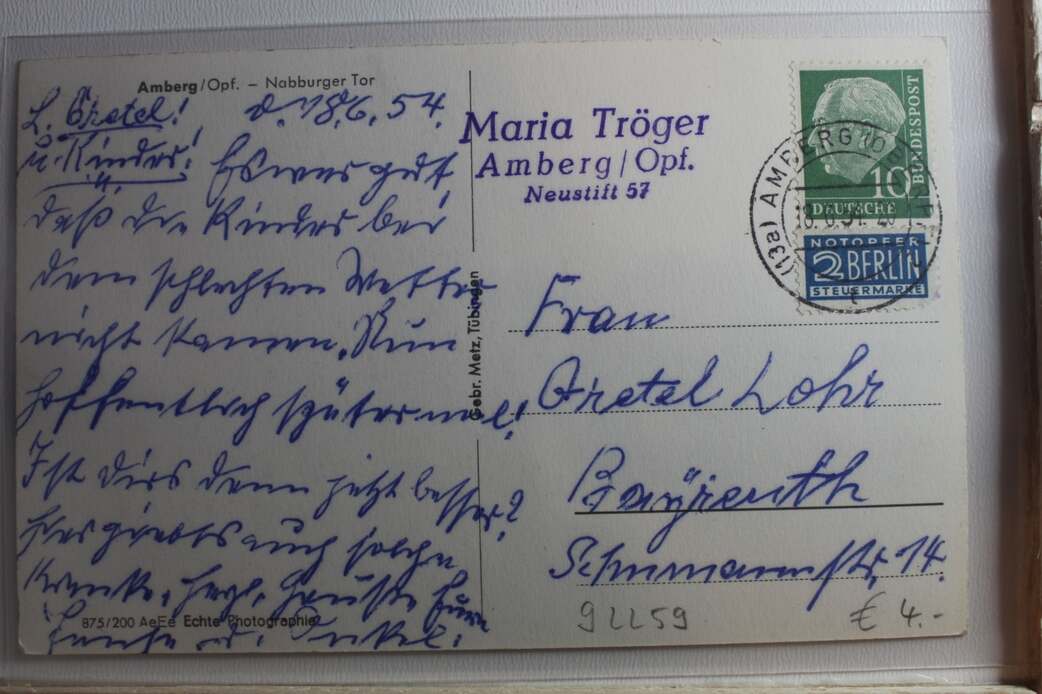 Amberg/Opf. – Nabburger Tor
L. Gretel! d. 18.6.54.
u. Kinder! Es war gut,
daß die Kinder bei
dem schlechten Wetter
nicht kamen. Nun
hoffentlich später mal!
Ist dirs denn jetzt besser?
Hier giebts auch solche
Kranke. Herzl. Grüße Eure
u. Onkel.
875/200 AeEe Echte Photographie
Gebr. Metz, Tübingen
Maria Tröger
Amberg/Opf.
Neustift 57
BUNDESPOST
10
DEUTSCHE
(13a) AMBERG
18.6.54
NOTOPFER
2 BERLIN
STEUERMARKE
Frau
Gretel Lohr
Bayreuth
Schumannstr. 14.
92259
€ 4.-